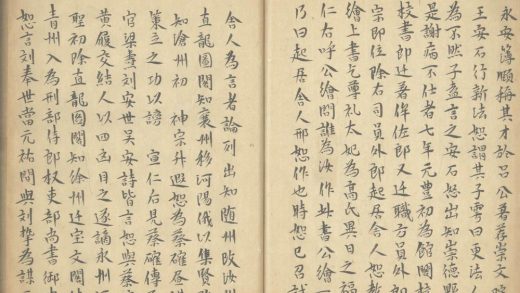 永安簿頗稱其才於吕公著薦崇文院
王安石行新法恕謂其子雱曰更法人
為不然子盍言之安石怒出知崇德縣
是謝病不仕者七年元豐初為館閣校
校書郎迁著作佐郎又迁職方員外郎
宗即位除右司員外郎起居舍人恕教
繪上書乞尊礼太妃為高氏異日之福
仁右呼公繪問誰為汝作此書公繪
乃曰起居舍人邢恕作也時恕已召試
舍人為言者論列出知随州改汝州
直龍圖閣知襄州移河陽俄以集賢
知滄州初 神宗升遐恕為蔡確
策立之功以謗 宣仁右見蔡確傳
官梁燾刘安世吴安詩皆言恕與蔡
黄履交結人以四凶目之逐謫永州
聖初除直龍圖閣知徐州迁宝文閣
青州入為刑部侍郎权吏部尚書御
恕言刘奉世當元祐間與刘摯為謀